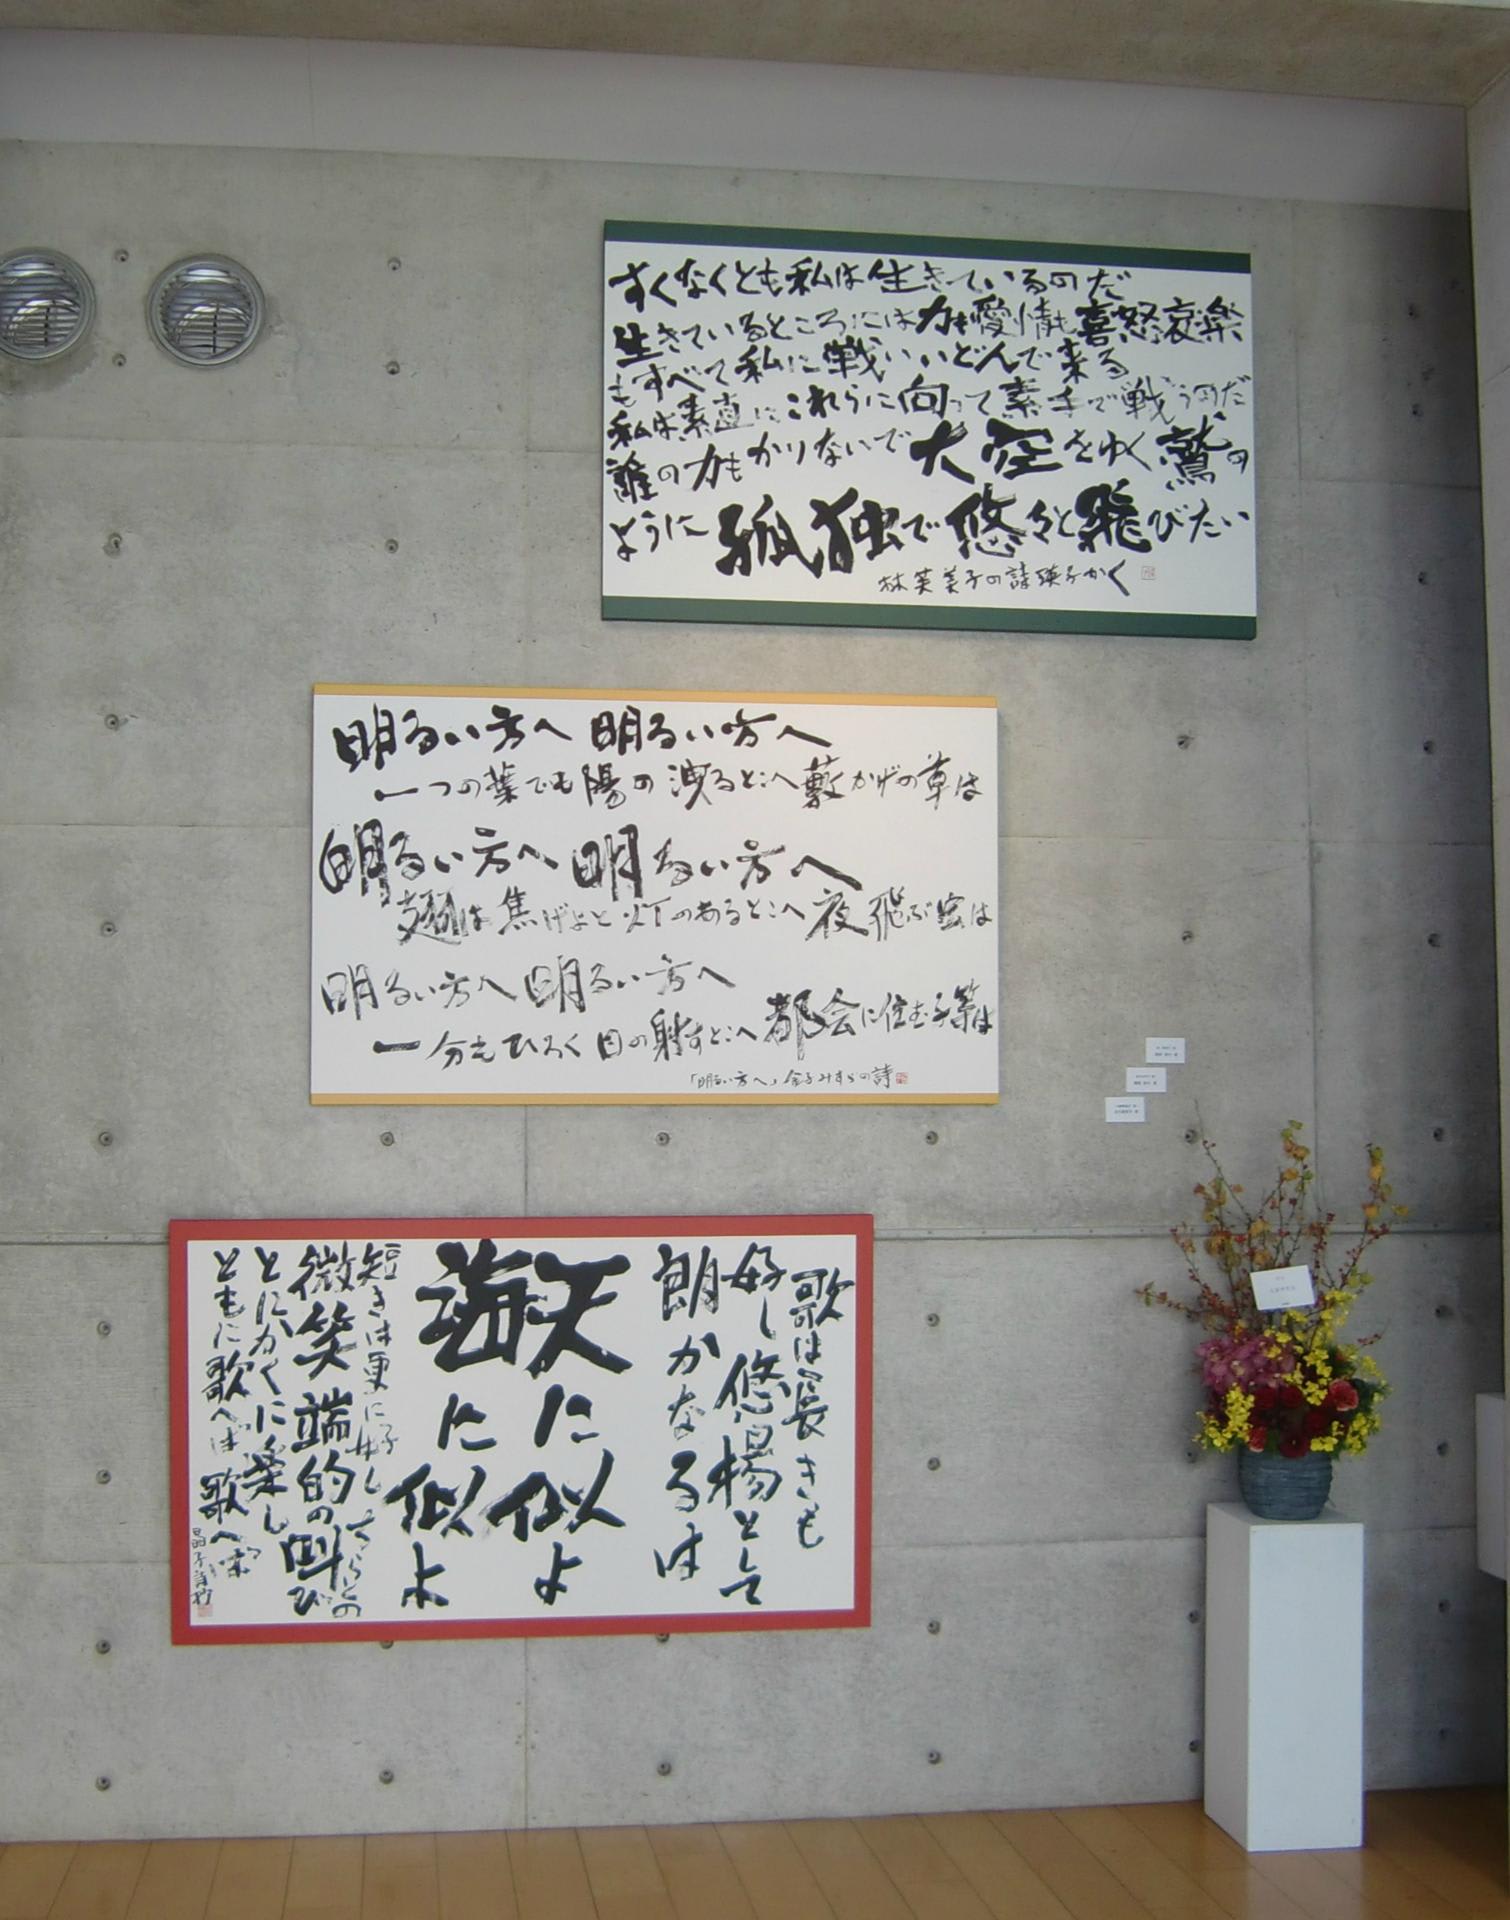 すくなくとも私は生きているのだ
生きているところには力も愛情も喜怒哀楽
もすべて私に戦いいどんで来る
私は素直にこれらに向って素手で戦うのだ
誰の力もかりないで大空をゆく鷲の
ように孤独で悠々と飛びたい
林芙美子の詩瑛子かく
明るい方へ 明るい方へ
一つの葉でも陽の洩るとこへ藪かげの草は
明るい方へ 明るい方へ
翅は焦げよと灯のあるとこへ夜飛ぶ虫は
明るい方へ 明るい方へ
一分もひろく日の射すとこへ都会に住む子等は
「明るい方へ」金子みすゞの詩
歌は長きも
好し悠揚として
朗かなるは
天に似よ
海に似よ
短きは更に好しちらとの
微笑端的の叫び
とにかくに楽し
ともに歌へば歌へば
晶子